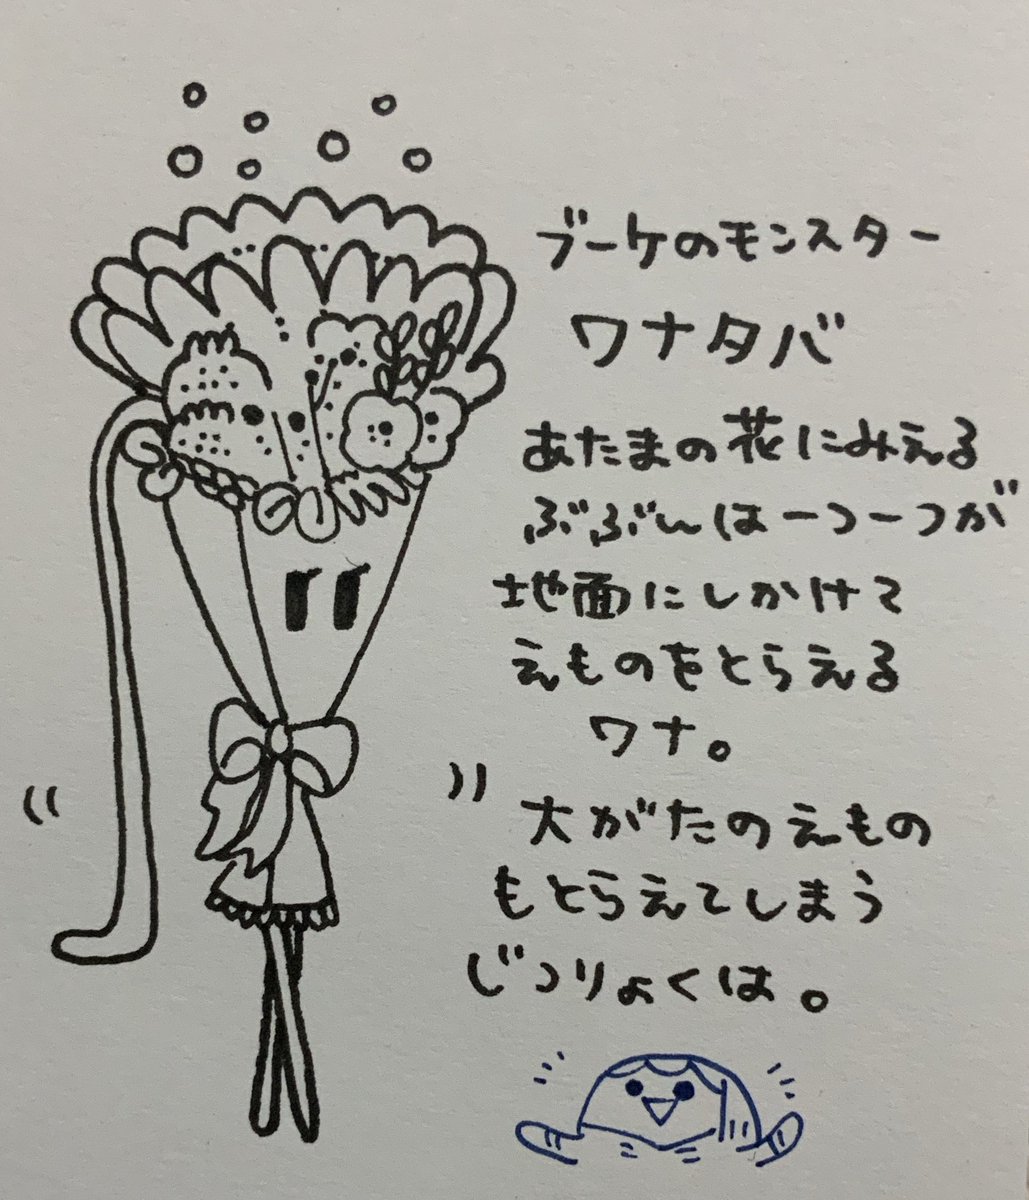 ブーケのモンスター
ワナタバ
あたまの花にみえる
ぶぶんは一つ一つが
地面にしかけて
えものをとらえる
ワナ。
大がたのえもの
もとらえてしまう
じつりょくは。